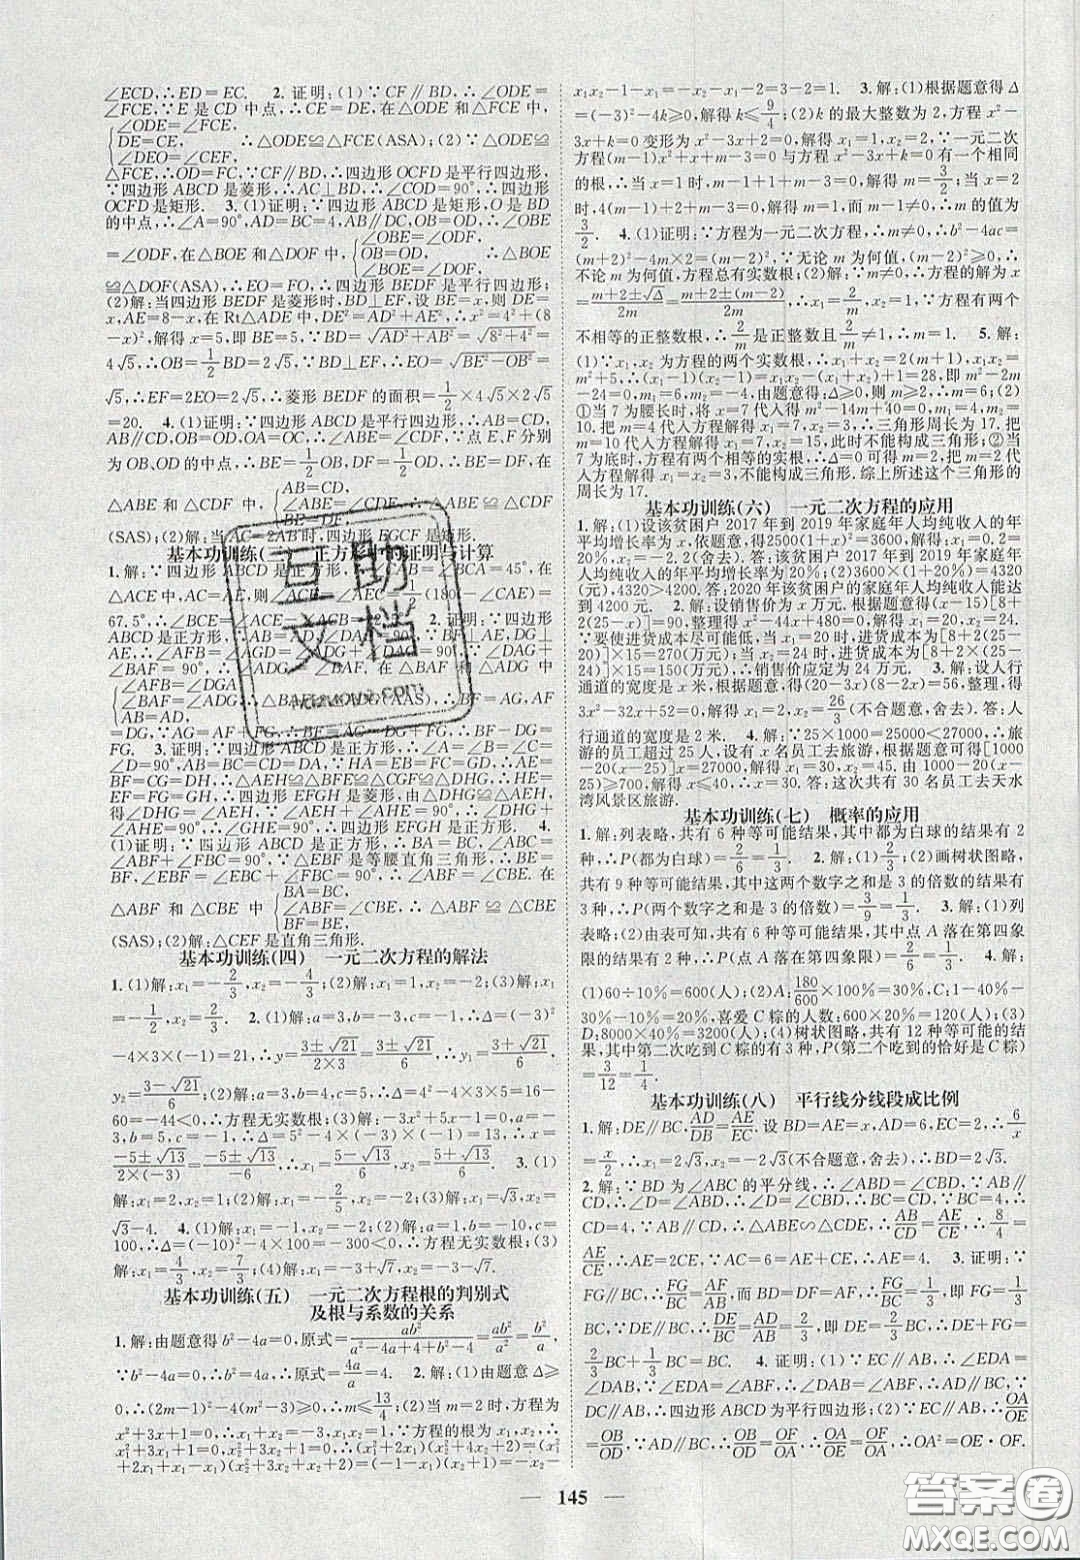 ∠ECD,∴ED=EC.　2.证明:(1)∵CF∥BD,∴∠ODE=
∠FCE,∵E是CD中点,∴CE=DE,在△ODE和△FCE中,
∠ODE=∠FCE,
DE=CE,
∠DEO=∠CEF,
∴△ODE≌△FCE(ASA);(2)∵△ODE≌
△FCE,∴OD=FC,∵CF∥BD,∴四边形OCFD是平行四边形,
∵四边形ABCD是菱形,∴AC⊥BD,∴∠COD=90°,∴四边形
OCFD是矩形.　3.(1)证明:∵四边形ABCD是矩形,O是BD
的中点,∴∠A=90°,AD=BC=4,AB∥DC,OB=OD,∴∠OBE
=∠ODF,在△BOE和△DOF中,
∠OBE=∠ODF,
OB=OD,
∠BOE=∠DOF,
∴△BOE
≌△DOF(ASA),∴EO=FO,∴四边形BEDF是平行四边形;
(2)解:当四边形BEDF是菱形时,BD⊥EF,设BE=x,则DE=
x,AE=8-x,在Rt△ADE中,DE²=AD²+AE²,∴x²=4²+(8
-x)²,解得x=5,即BE=5,∵BD=√(AD²+AB²)=√(8²+4²)=
4√5,∴OB=1/2BD=2√5,∵BD⊥EF,∴EO=√(BE²-OB²)=
√5,∴EF=2EO=2√5,∴菱形BEDF的面积=1/2×4√5×2√5
=20.　4.(1)证明:∵四边形ABCD是平行四边形,∴AB=CD,
AB∥CD,OB=OD,OA=OC,∴∠ABE=∠CDF,∵点E,F分别
为OB,OD的中点,∴BE=1/2OB,DF=1/2OD,∴BE=DF,在
△ABE和△CDF中,
AB=CD,
∠ABE=∠CDF,
BE=DF,
∴△ABE≌△CDF
(SAS);(2)解:当AC=2AB时,四边形EGCF是矩形.
1.解:∵四边形ABCD是正方形,
67.5°,∴∠BCE=
FG.　3.证明:∵四边形ABCD是正方形,
∠D=90°,AB=BC=CD=AD,∵AE=BF=CG=DH,∴AH=
BE=CF=DG,∴△AEH≌△BFE≌△CGF≌△DHG,∴HE=
EF=FG=GH,∴四边形EFGH是菱形.由△DHG≌△AEH,
得∠DHG=∠AEH,∵∠AEH+∠AHE=90°,∴∠DHG+
∠AHE=90°,∴∠GHE=90°,∴四边形EFGH是正方形.　4.
(1)证明:∵四边形ABCD是正方形,∴BA=BC,∠ABC=
∠ABF+∠CBF=90°,∵△EBF是等腰直角三角形,∴BE=
BF,∠EBF=∠EBC+∠FBC=90°,∴∠ABF=∠CBE.在
△ABF和△CBE中
BA=BC,
∠ABF=∠CBE,
BF=BE,
∴△ABF≌△CBE
(SAS);(2)解:△CEF是直角三角形.
基本功训练(四)　一元二次方程的解法
1.(1)解:x₁=-2/3,x₂=-4/3;(2)解:x₁=1,x₂=-2;(3)解:x₁
=-1/2,x₂=2/3.　2.(1)解:a=3,b=-3,c=-1,∴Δ=(-3)²
-4×3×(-1)=21,∴y=(3±√21)/(2×3)=(3±√21)/6,∴y₁=(3+√21)/6,
y₂=(3-√21)/6;(2)解:a=3,b=4,c=5,∴Δ=4²-4×3×5=16-
60=-44<0,∴方程无实数根;(3)解:-3x²+5x-1=0,a=-
3,b=5,c=-1,∴Δ=5²-4×(-3)×(-1)=13,∴x=
(-5±√13)/(2×(-3))=(-5±√13)/-6,∴x₁=(5-√13)/6,x₂=(5+√13)/6.　3.(1)
解:x₁=2,x₂=4;(2)解:x₁=-2/5,x₂=1;(3)解:x₁=-1,x₂=
√3-4.　4.(1)解:x₁=-1,x₂=-2;(2)解:a=1,b=-10,c=
100,∴Δ=(-10)²-4×100=-300<0,∴方程无实数根;(3)
解:x₁=4/3,x₂=7/3;(4)解:x₁=4,x₂=-2.
基本功训练(五)　一元二次方程根的判别式
及根与系数的关系
1.解:由题意得b²-4a=0,原式=ab²/(a²-4a+4+b²-4)=ab²/a²=b²/a,
∵b²-4a=0,∴b²=4a,∴原式=4a/a=4.　2.解:(1)由题意Δ≥
0,∴(2m-1)²-4(m²-3)≥0,∴m≤13/4;(2)当m=2时,方程为
x²+3x+1=0,∴x₁+x₂=-3,x₁x₂=1,∵方程的根为x₁,x₂,∴
x₁²+3x₁+1=0,x₂²+3x₂+1=0,∴(x₁²+2x₁)(x₂²+4x₂+2)=(x₁²
+2x₁+x₁-x₁)(x₂²+3x₂+x₂+2)=(-1-x₁)(-1+x₂+2)=(-1-x₁)(x₂+1)=-x₂-
x₁x₂-1-x₁=-x₁-x₂-2=3-2=1.　3.解:(1)根据题意得Δ
=(-3)²-4k≥0,解得k≤9/4;(2)k的最大整数为2,方程x²-
3x+k=0变形为x²-3x+2=0,解得x₁=1,x₂=2,∵一元二次
方程(m-1)x²+x+m-3=0与方程x²-3x+k=0有一个相同
的根,∴当x=1时,m-1+1+m-3=0,解得m=3/2;当x=2
时,4(m-1)+2+m-3=0,解得m=1,而m-1≠0,∴m的值为
3/2.　4.(1)证明:∵方程为一元二次方程,∴m≠0,∴b²-4ac=
(m+2)²-4m×2=(m-2)²,∵无论m为何值,(m-2)²≥0,∴
不论m为何值,方程总有实数根;(2)解:解方程得x=
(m+2±√Δ)/2m=(m+2±(m-2))/2m,∴x₁=2/m,x₂=1,∵方程有两个
不相等的正整数根,∴2/m是正整数且2/m≠1,∴m=1.　5.解:
(1)∵x₁,x₂为方程的两个实数根,∴x₁+x₂=2(m+1),x₁x₂=
m²+5,∴(x₁-1)(x₂-1)=x₁x₂-(x₁+x₂)+1=28,即m²-2m
-24=0,m₁=6,m₂=-4,由题意得;Δ≥0,则m≥2,∴m=6;(2)
①当7为腰长时,将x=7代入得m²-14m+40=0,m=4或m=
10.把m=4代入方程解得x₁=7,x₂=3,∴三角形周长为17.把
m=10代入方程解得x₁=7,x₂=15,此时不能构成三角形;②当
7为底时,方程有两个相等的实数根,∴Δ=0可得m=2,把m=2
代入方程解得x₁=x₂=3,不能构成三角形.综上所述这个三角形的
周长为17.
基本功训练(六)　一元二次方程的应用
1.解:(1)设该贫困户2017年到2019年家庭年人均纯收入的年
平均增长率为x,依题意得2500(1+x)²=3600,解得x₁=0.2=
20%,x₂=-2.2(舍去).答:该贫困户2017年到2019年家庭年人
均纯收入的年平均增长率为20%;(2)3600×(1+20%)=4320
(元),4320>4200.答:2020年该贫困户的家庭年人均纯收入能达
到4200元.　2.解:设销售价为x万元.根据题意得(x-15)[8+
2(25-x)]=90,整理得x²-44x+480=0,解得x₁=20,x₂=24.
∵要使进货成本尽可能低,当x=20时,进货成本为[8+2(25-
20)]×15=270(万元);当x=24时,进货成本为[8+2(25-24)]
×15=150(万元),∴销售价应定为24万元.　3.解:设人行
通道的宽度是x米,根据题意,得(20-3x)(8-2x)=56,整理,得
3x²-32x+52=0,解得x₁=2,x₂=26/3(不合题意,舍去).答:人
行通道的宽度是2米.　4.解:∵25×1000=25000<27000,∴旅
游的员工超过25人,设有x名员工去旅游,根据题意,得[1000
-20(x-25)]x=27000,解得x₁=30,x₂=45.由1000-20(x-
25)≥700,解得x≤40,∴x=30.答:这次共有30名员工去天水
湾风景区旅游.
基本功训练(七)　概率的应用
1.解:列表略,共有6种等可能结果,其中都为白球的结果有2
种,∴P(都为白球)=2/6=1/3.　2.解:(1)2/3;(2)画树状图略,
共有9种等可能结果,其中这两个数字之和是3的倍数的结果有
3种,∴P(两个数字之和是3的倍数)=3/9=1/3.　3.解:(1)列
表略;(2)由表可知,共有6种等可能结果,其中点A落在第四象
限的结果有2种,∴P(点A落在第四象限)=2/6=1/3.　4.解:
(1)60÷10%=600(人);(2)A:180/600×100%=30%,C:1-40%-
30%-10%=20%,喜爱C粽的人数:600×20%=120(人);(3)
D:8000×40%=3200(人);(4)树状图略,共有12种等可能的结
果,其中第二次吃到C粽的有3种,P(第二个吃到的恰好是C粽)
=3/12=1/4.
基本功训练(八)　平行线分线段成比例
1.解:DE∥BC,AD/DB=AE/EC.设BD=AE=x,AD=6,EC=2,∴6/x
=x/2,∴x₁=2√3,x₂=-2√3(不合题意,舍去),∴BD=2√3.
2.解:∵BD为∠ABC的平分线,∴∠ABD=∠CBD,∵AB∥
CD,∴∠D=∠ABD,∴∠D=∠CBD,∴BC=CD,∵BC=4,∴
CD=4,∵AB∥CD,∴△ABE∽△CDE,∴AB/CD=AE/CE,∴8/4=
AE/CE,∴AE=2CE,∵AC=6=AE+CE,∴AE=4.　3.证明:∵
FG∥BC,∴FG/BC=AF/AB,而BD=DF=AF,∴FG/BC=1/3,即FG=
1/3BC,∵DE∥BC,∴DE/BC=AD/AB=2/3,即DE=2/3BC,∴DE+FG=
2/3BC+1/3BC=BC.　4.证明:(1)∵EC∥AB,∴∠EDA=
∠DAB,∵∠EDA=∠ABF,∴∠DAB=∠ABF,∴AD∥BC,∵
DC∥AB,∴四边形ABCD为平行四边形;(2)∵EC∥AB,∴OA/OE
=OB/OD,∵AD∥BF,∴OB/OD=OF/OA,∴OA/OE=OF/OA,∴OA²=OE·OF.
145
互助
文档
答案圈
MXQE.COM